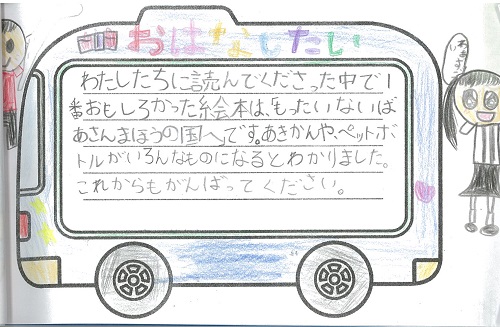 おはなしたい
わたしたちに読んでくださった中で1
番おもしろかった絵本は、もったいないば
あさんまほうの国へです。あきかんや、ペットボ
トルがいろんなものになるとわかりました。
これからもがんばってください。